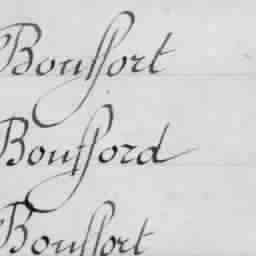 Boussort
Boussord
Boussort